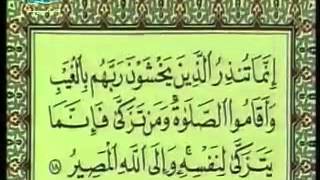 إِنَّمَا تُنذِرُ الَّذِينَ يَخْشَوْنَ رَبَّهُم بِالْغَيْبِ
وَأَقَامُوا الصَّلَوٰةَ ۚ وَمَن تَزَكَّىٰ فَإِنَّمَا
يَتَزَكَّىٰ لِنَفْسِهِ ۚ وَإِلَى اللَّهِ الْمَصِيرُ ١٨